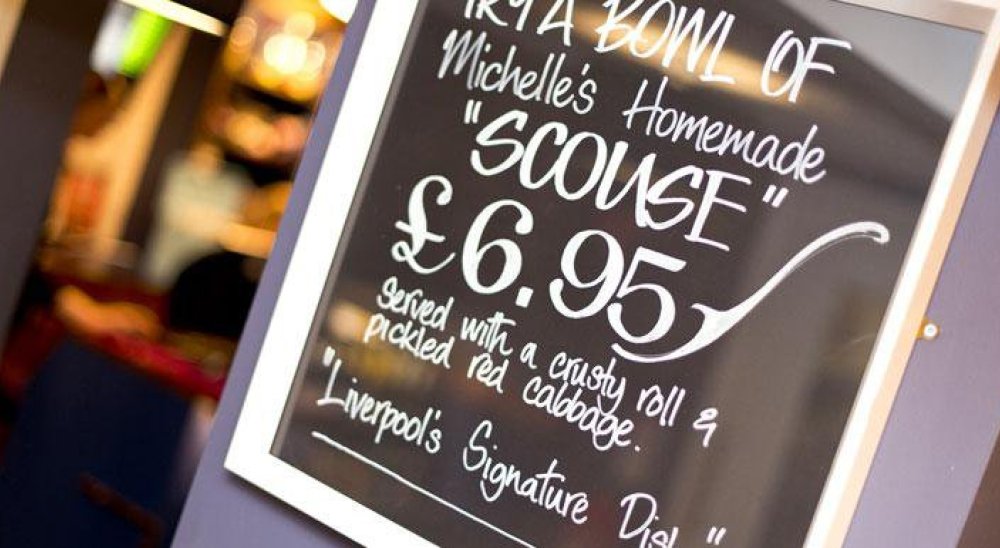 TRY A BOWL OF
Michelle's Homemade
"SCOUSE"
£6.95
served with a crusty roll &
pickled red cabbage.
"Liverpool's Signature Dish"